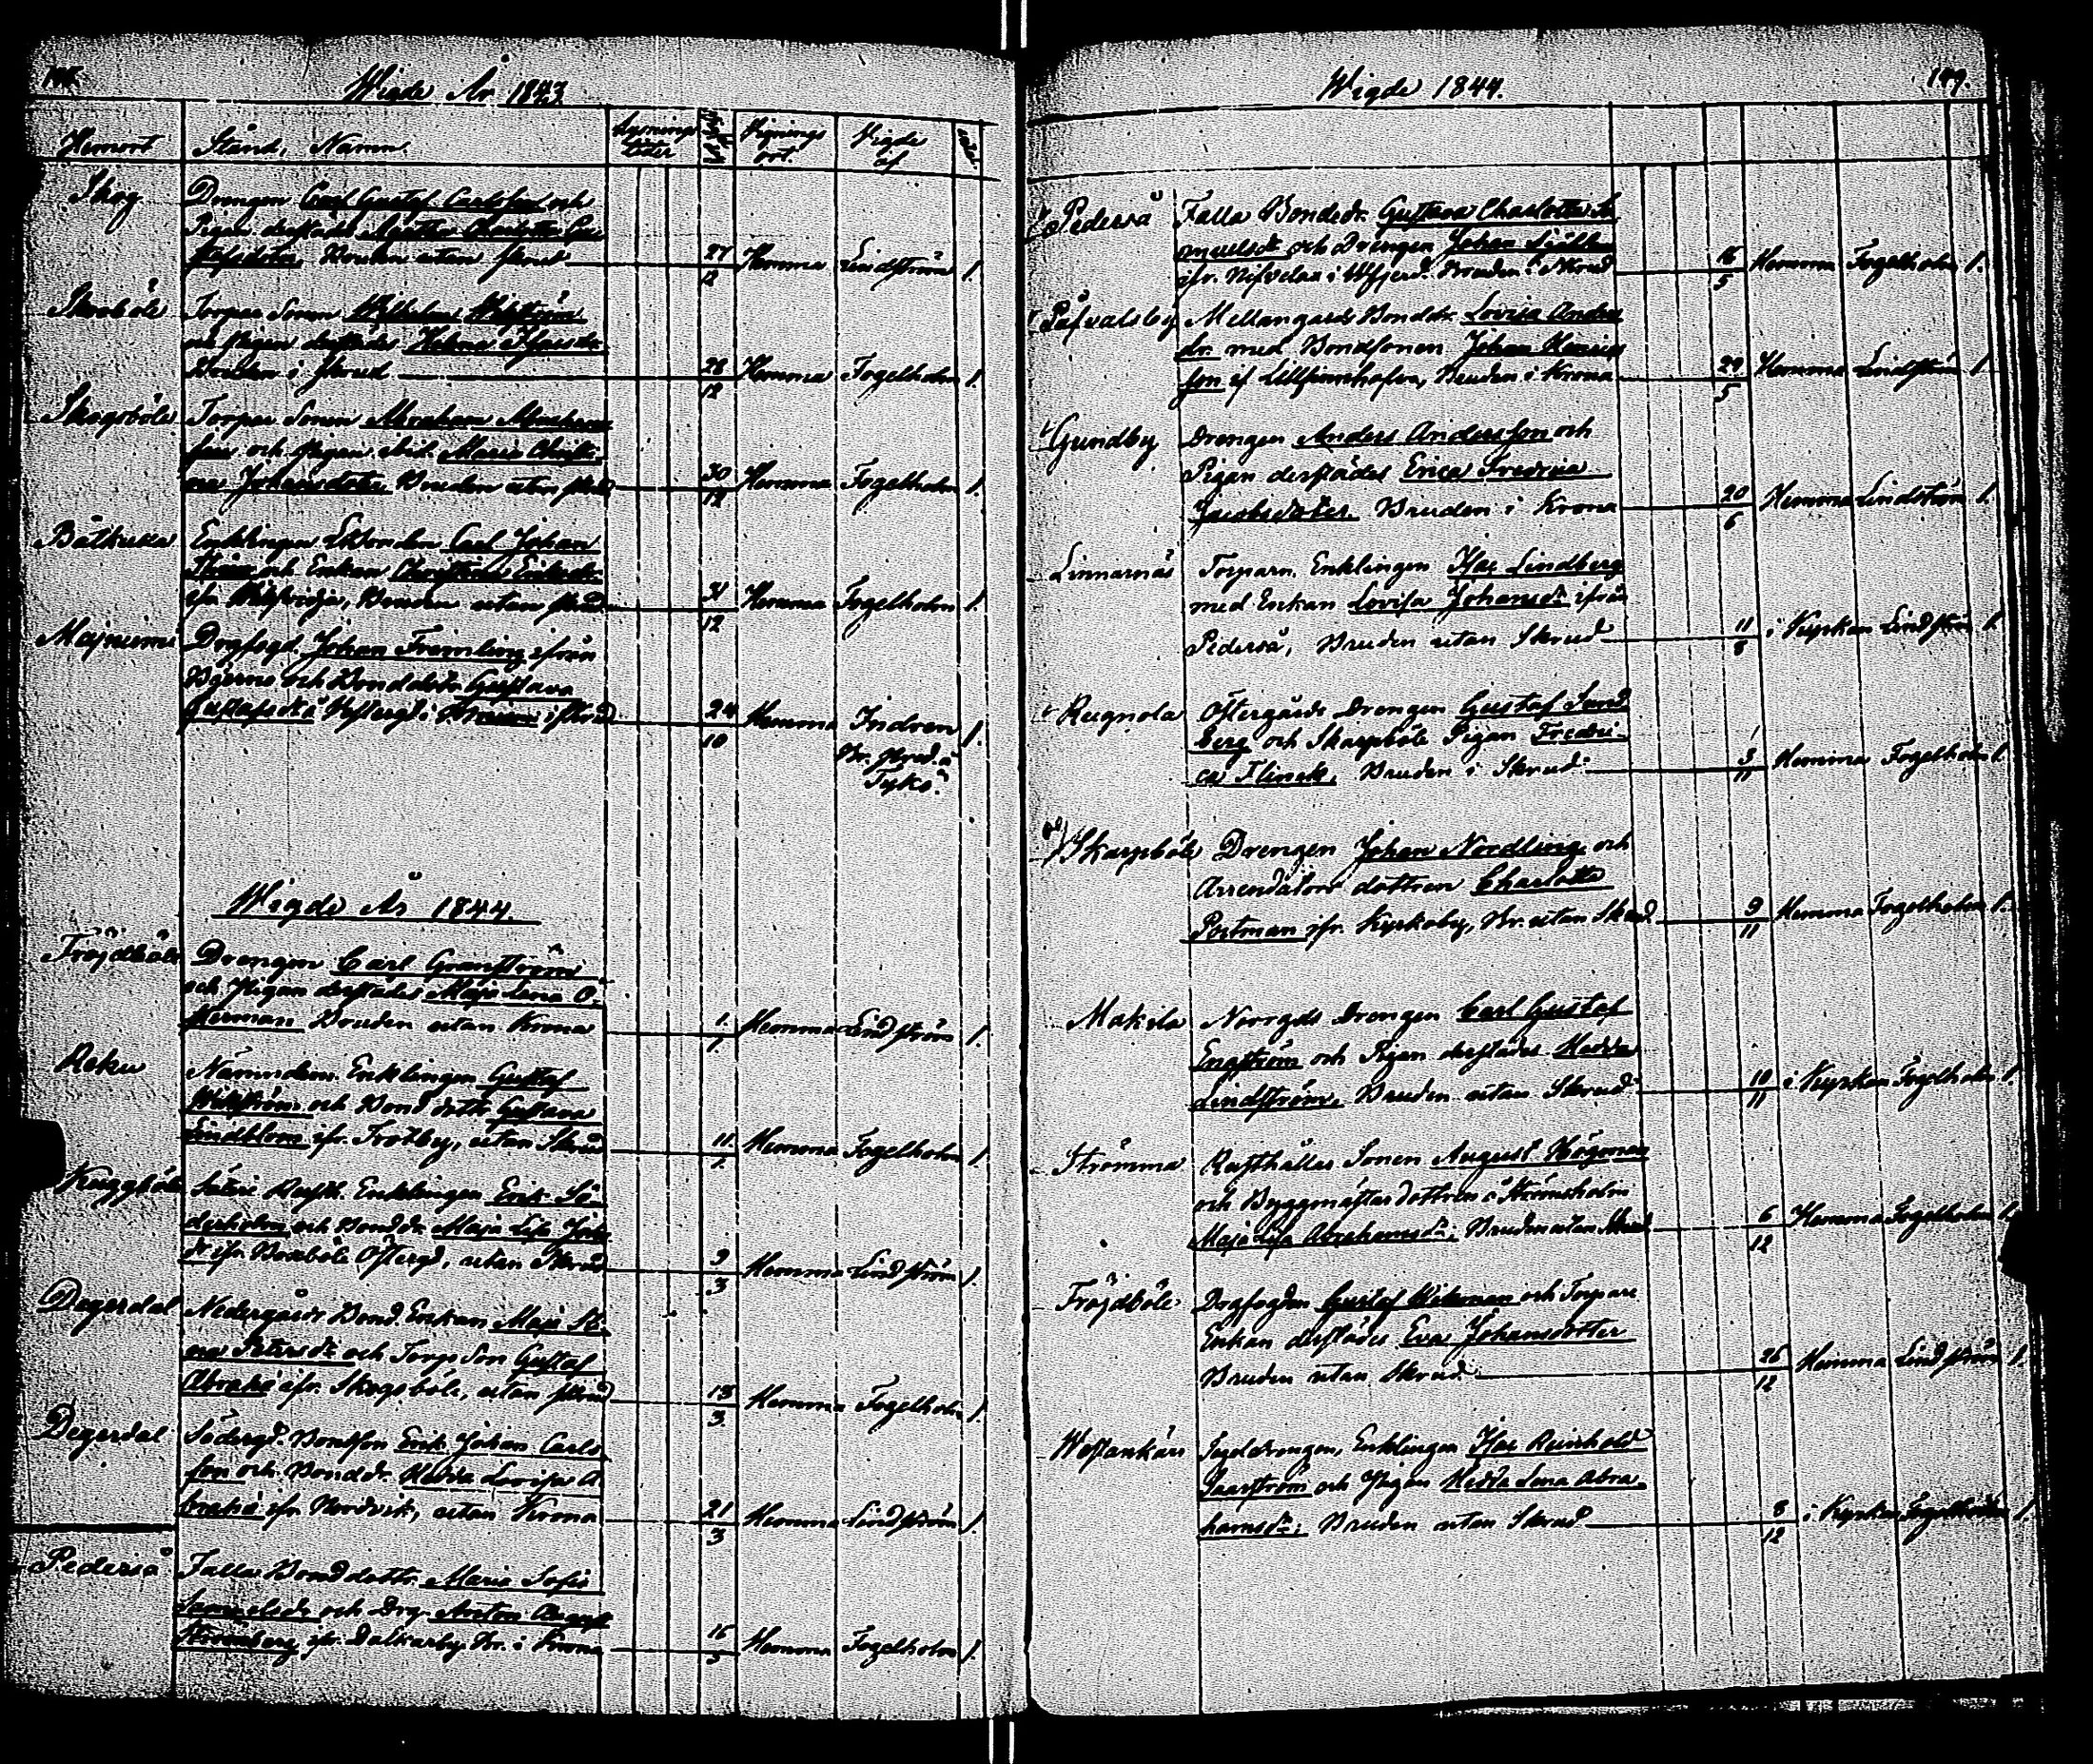 Wigde År 1843
Hemort Stånd, Namn. Lysnings tider Vignings ort. Vigde af
Skog Drengen Carl Gustaf Carlsson och
Pigan derstädes Charlotta
Bruden utan skrud 27/12 Hemma Lindström 1.
Torpare Sonen Wilhelm
och Pigan derstädes Helena
Bruden i skrud 28/12 Hemma Fogelholm 1.
Skogsböle Torpare Sonen Abraham
son och Pigan ibid. Maria Christi
na Johansdotter Bruden utan skrud 30/12 Hemma Fogelholm 1.
Båtkulla Enklingen Carl Johan
och Enkan Christina
Bruden utan skrud 31/12 Hemma Fogelholm 1.
Majniemi Drgfogd. Johan Fremling ifrån
Bjernå och Bonddotr. Gustava
Gustafsdr i skrud 24/10 Hemma Indren 1.
Tykö.
Wigde År 1844.
Fröjdböle Drengen Carl Granström
och Pigan derstädes Maja Lena Å
kerman Bruden utan Krona 1./1. Hemma Lindström 1.
Reku Nämndem. Enklingen Gustaf
Wikström och Bond dottr. Gustava
Lindblom ifr. Trotby, utan Skrud 11./1. Hemma Fogelholm 1.
Kuggböle Säteri Rusth. Enklingen Erik Sö
derholm och Bonddr. Maja Lisa Joh
dr ifr. Östergd, utan Skrud 9/3 Hemma Lindström 1.
Degerdal Nedergårds Bond Enkan Maja St
na Petersdr och Torp. Son Gustaf
Abrahs ifr. Skogsböle, utan skrud 18/3. Hemma Fogelholm 1.
Degerdal Södergd. Bondson Erik Johan Carls
son och Bonddr. Hedda Lovisa A
brahs ifr. Nordvik, utan Krona 21/3 Hemma Lindström 1.
Pederså Falla Bonddottr. Maria Sofia
Samuelsdr och Drg. Anton August
Strömberg ifr. Dalkarby Br. i Krona 16/5 Hemma Fogelholm 1.
Wigde 1844. 149.
Pederså Falla Bondedr. Gustava Charlotta Sa
muelsdr och Drengen Johan
ifr. i Bruden i Skrud 16/5 Hemma Fogelholm 1.
Påfvalsby Mellangårds Bonddr. Lovisa Anders
dr. med Bondsonen Johan Henrics
son if Bruden i Krona 29/5 Hemma Lindström 1.
Gundby Drengen Anders Andersson och
Pigan derstädes Erica Fredrica
Jacobsdotter. Bruden i Krona 20/6 Hemma Lindström 1.
Linnarnäs Torparn. Enklingen Isac Lindberg
med Enkan Lovisa Johansdr ifrån
Pederså, Bruden utan Skrud 11/8 i Kyrkan Lindström 1.
Rugnola Östergårds Drengen Gustaf Sund
berg och Skarpböle Pigan Fredri
ca Flinck, Bruden i Skrud 3/11 Hemma Fogelholm 1.
Skarpböle Drengen Johan Nordling och
Arrendators dottren Charlotta
Portman ifr. Kyrkoby, Br. utan Skrud 9/11 Hemma Fogelholm 1.
Makila Norrgds Drengen Carl Gustaf
Engström och Pigan derstädes Hedda
Lindström, Bruden utan Skrud 10/11 i Kyrkan Fogelholm 1.
Strömma Rusthållar Sonen August Högman
och Byggmästar dottren å Strömsholm
Maja Lisa Abrahamsdr, Bruden utan Skrud 6/12 Hemma Fogelholm 1.
Fröjdböle Drgfogden Gustaf Wikman och Torpare
Enkan derstädes Eva Johansdotter
Bruden utan Skrud 26/12 Hemma Lindström 1.
Westankärr Enklingen Isac Reinhold
och Pigan Hedda Lena Abra
hamsdr. Bruden utan Skrud 8/12 i Kyrkan Fogelholm 1.